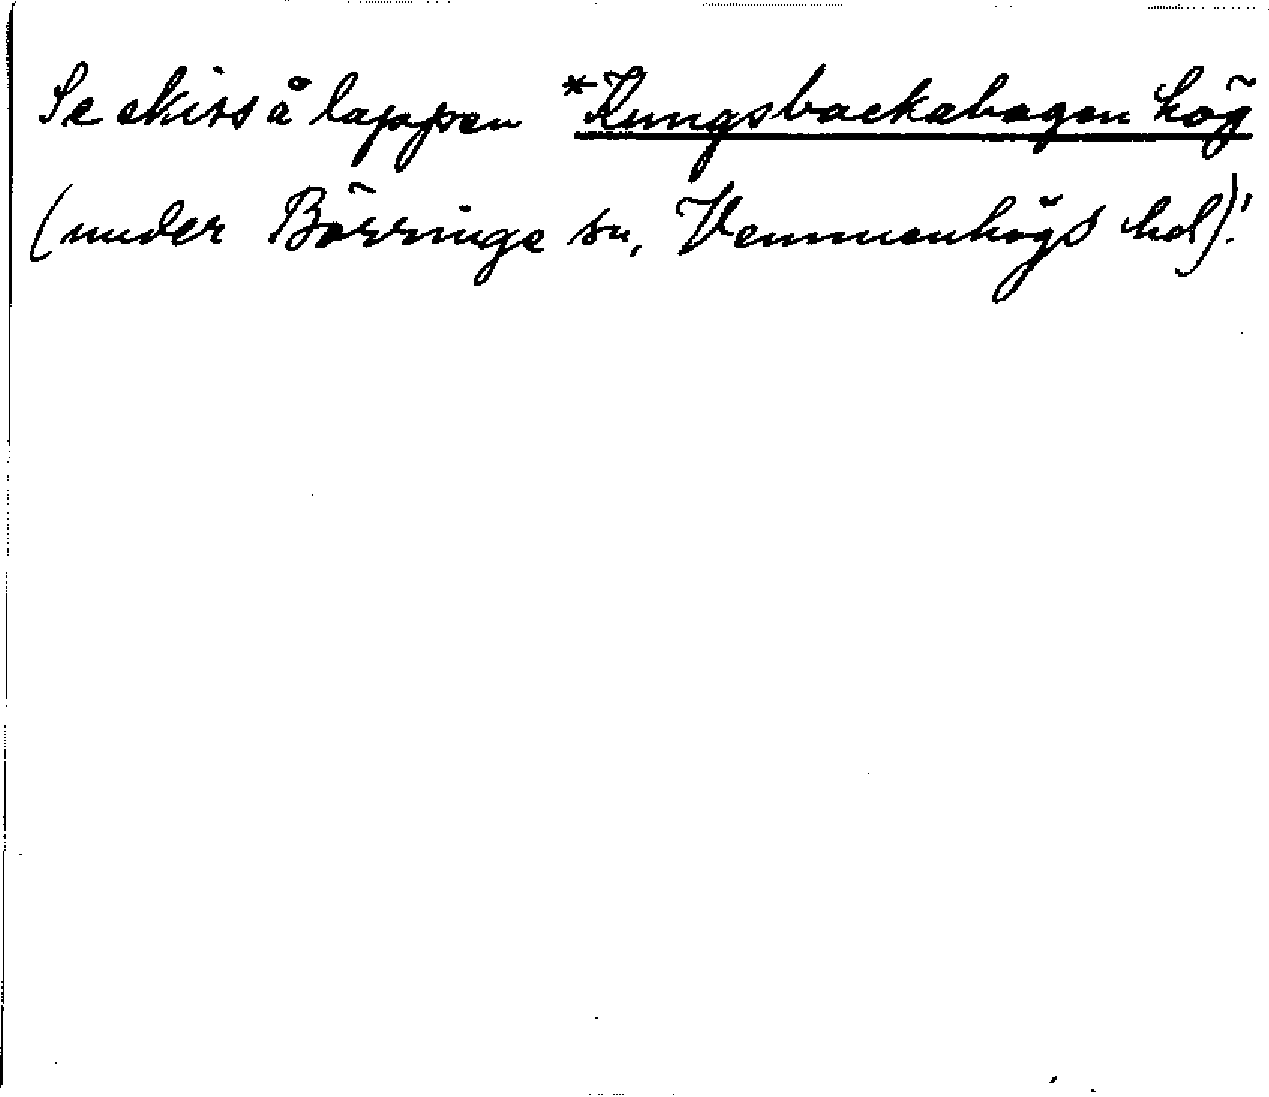 Se skiss å lappen *Kungsbackabagen hög
(under Börringe sn, Vemmenhögs hd)!